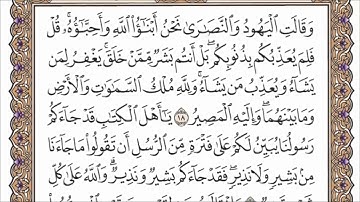 وَقَالَتِ ٱلْيَهُودُ وَٱلنَّصَٰرَىٰ نَحْنُ أَبْنَٰٓؤُا۟ ٱللَّهِ وَأَحِبَّٰٓؤُهُۥ ۚ قُلْ
فَلِمَ يُعَذِّبُكُم بِذُنُوبِكُم ۖ بَلْ أَنتُم بَشَرٌ مِّمَّنْ خَلَقَ ۚ يَغْفِرُ لِمَن
يَشَآءُ وَيُعَذِّبُ مَن يَشَآءُ ۚ وَلِلَّهِ مُلْكُ ٱلسَّمَٰوَٰتِ وَٱلْأَرْضِ
وَمَا بَيْنَهُمَا ۖ وَإِلَيْهِ ٱلْمَصِيرُ ١٨ يَٰٓأَهْلَ ٱلْكِتَٰبِ قَدْ جَآءَكُمْ
رَسُولُنَا يُبَيِّنُ لَكُمْ عَلَىٰ فَتْرَةٍ مِّنَ ٱلرُّسُلِ أَن تَقُولُوا۟ مَا جَآءَنَا
مِنۢ بَشِيرٍ وَلَا نَذِيرٍ ۖ فَقَدْ جَآءَكُم بَشِيرٌ وَنَذِيرٌ ۗ وَٱللَّهُ عَلَىٰ كُلِّ